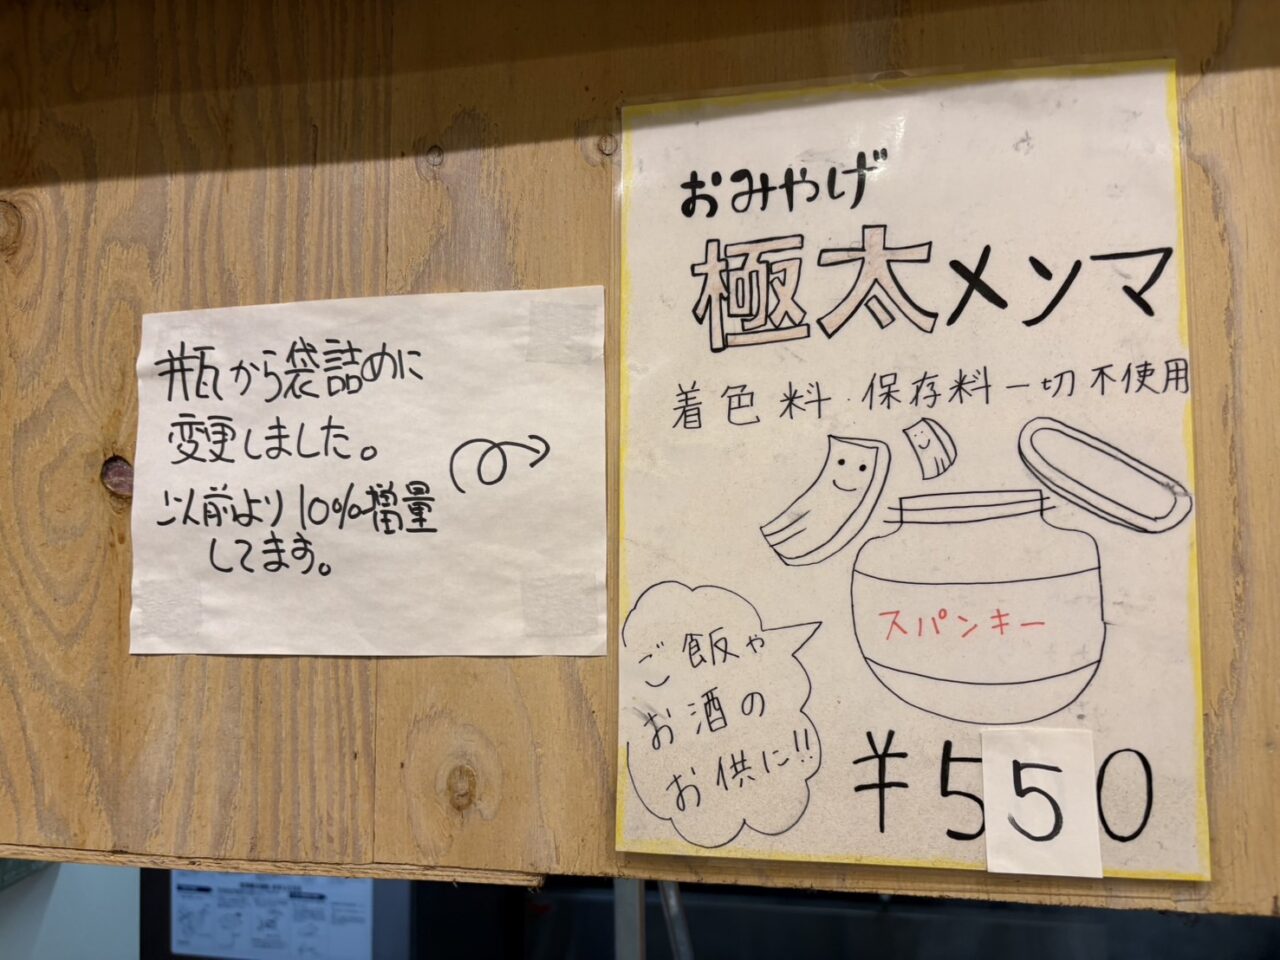 瓶から袋詰めに
変更しました。
以前より10%増量
してます。
おみやげ
極太メンマ
着色料・保存料一切不使用
スパンキー
ご飯や
お酒の
お供に!!
¥550